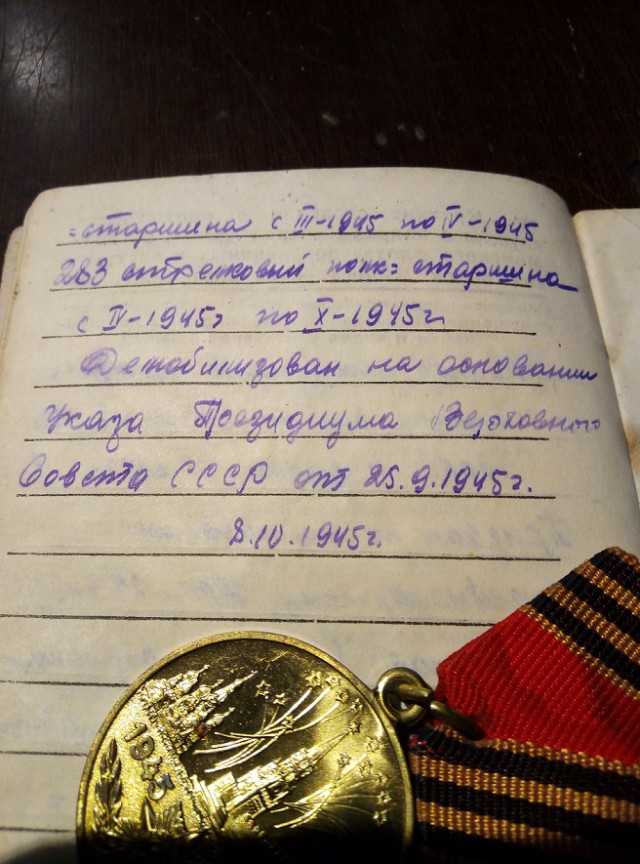 -старшина с III-1945 по IV-1945
283 стрелковый полк: старшина
с IV-1945г по X-1945г.
Демобилизован на основании
Указа Президиума Верховного
Совета СССР от 25.9.1945г.
8.10.1945г.
1945